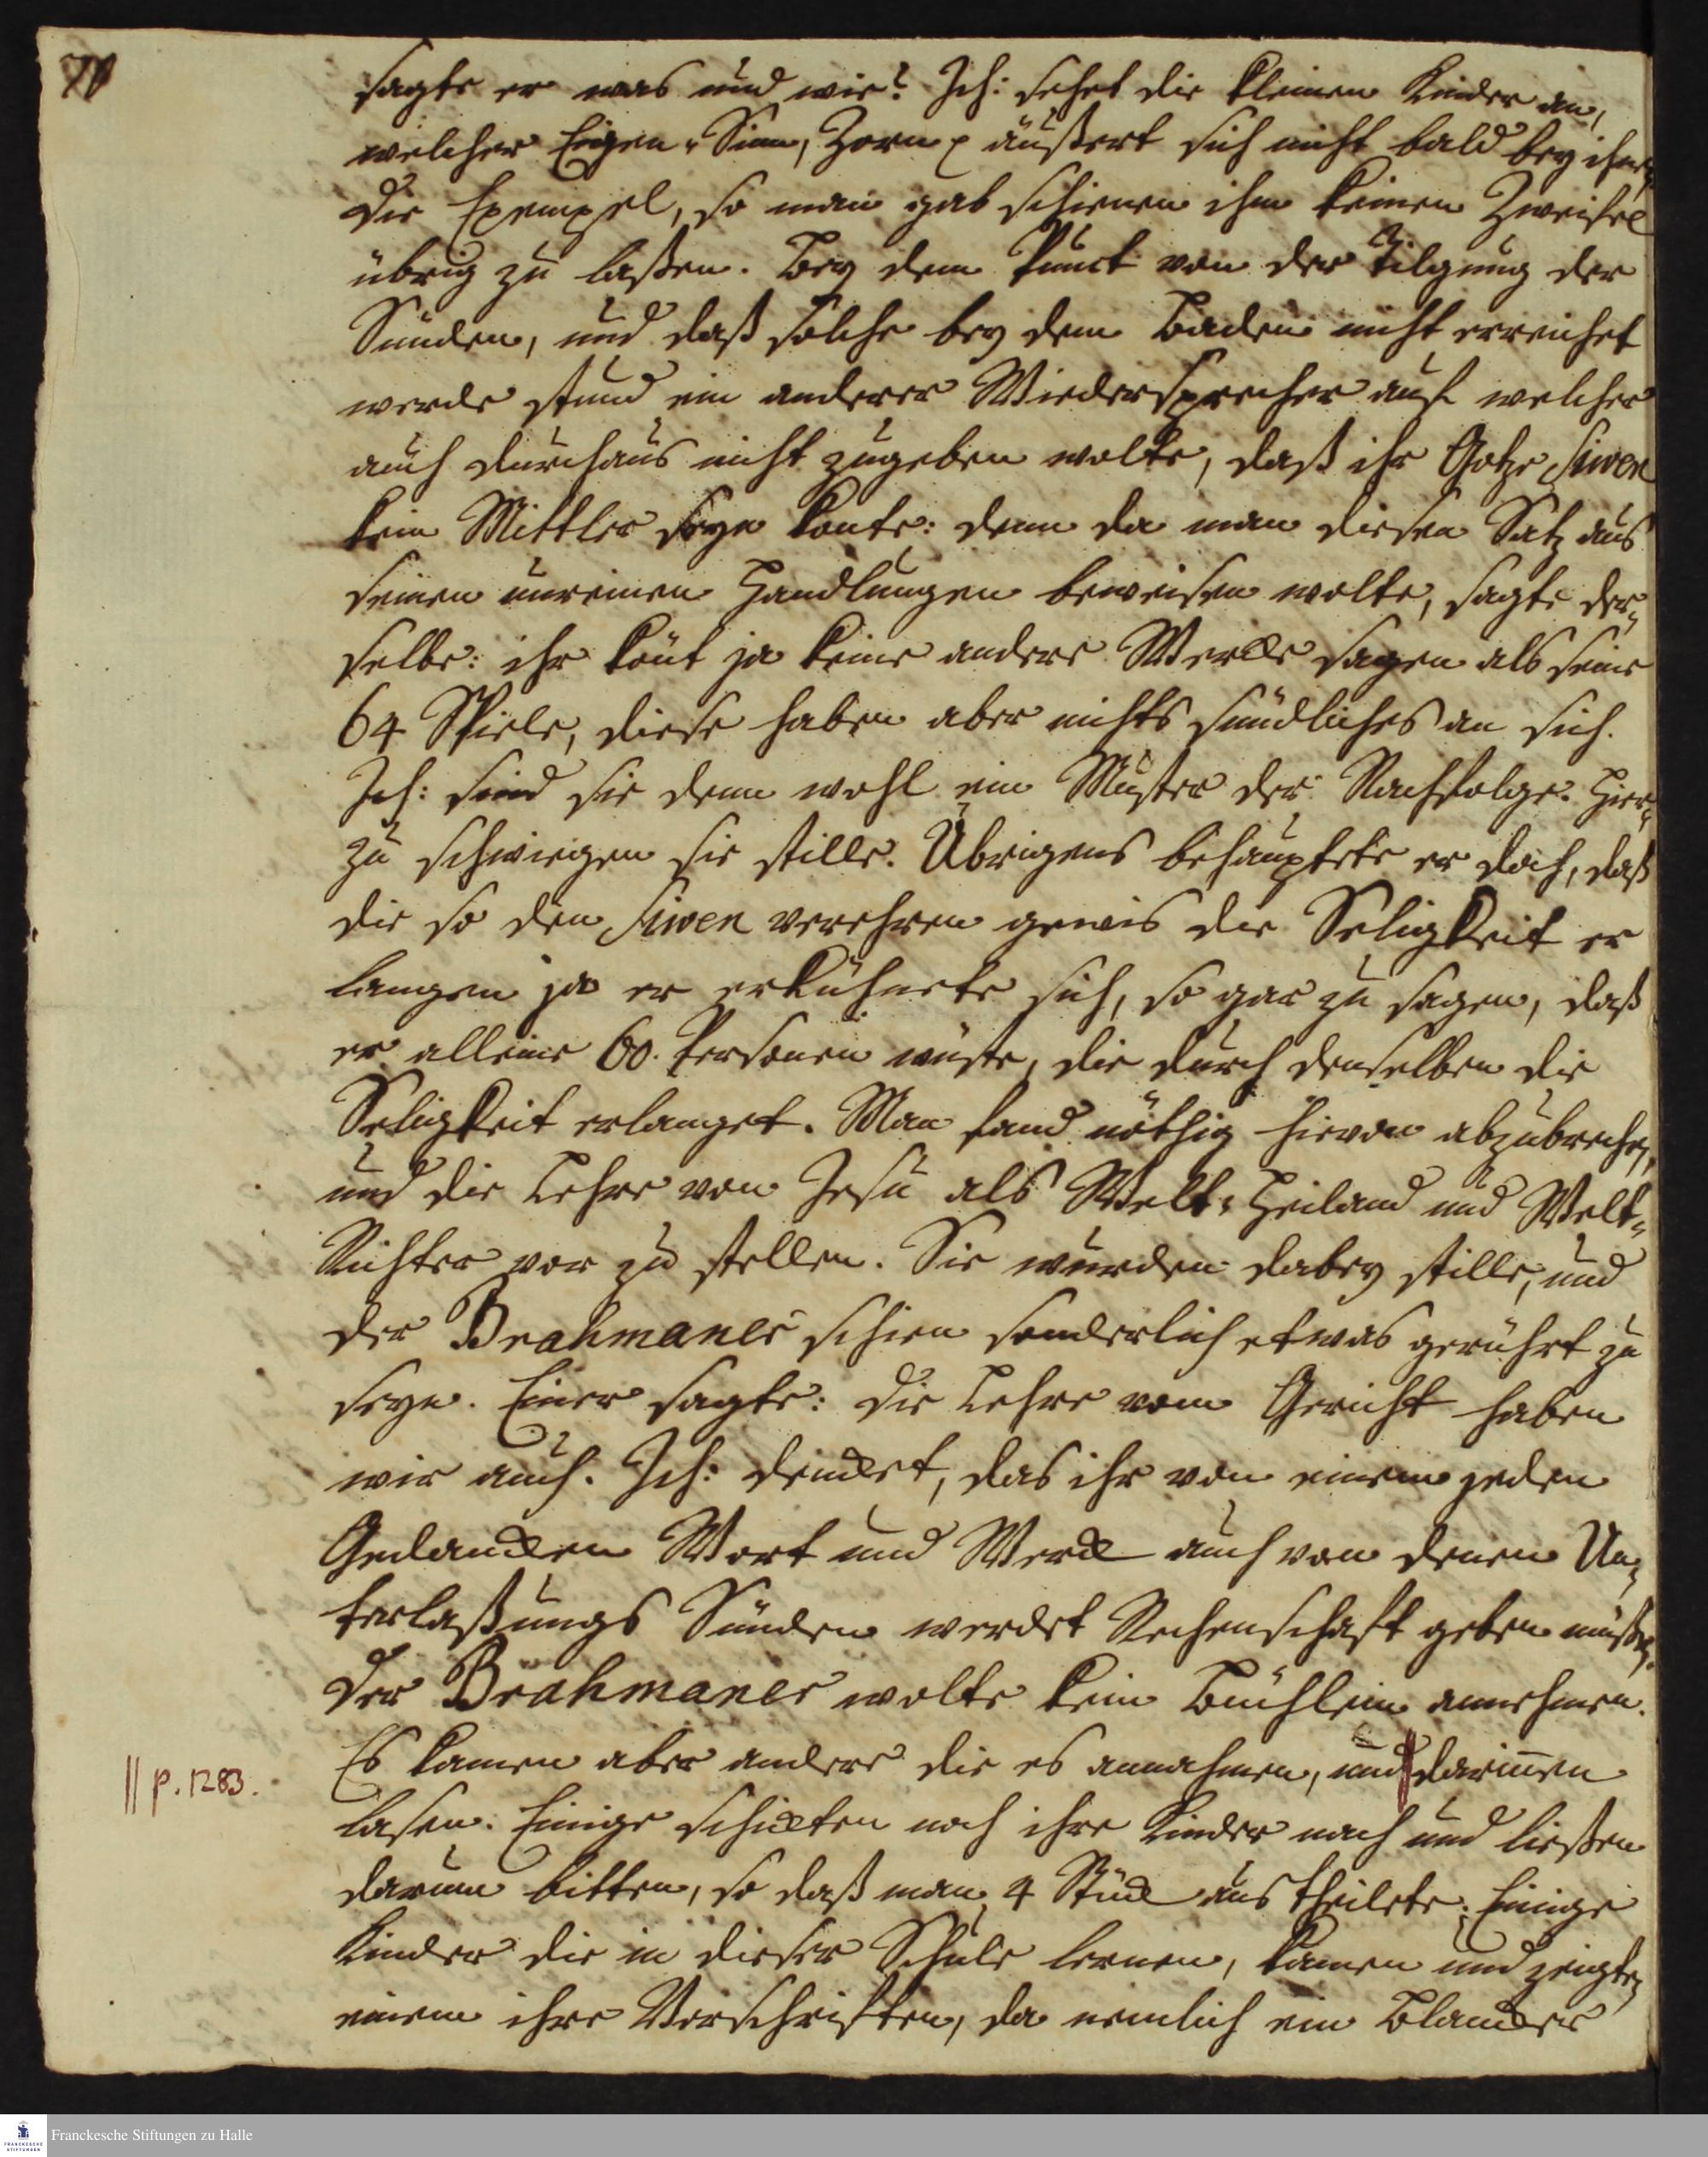 70
sagte er was und wie? Ich: sehet die kleinen Kinder an,
welcher Eigen-Sinn, Zorn p äußert sich nicht bald bey ihnen
Die Exempel, so man gab schienen ihm keinen Zweifel
übrig zu laßen. Bey dem Punct von der Tilgung der
Sünden, und daß solche bey dem Baden nicht erreichet
werde stund ein anderer Wiedersprecher auf welcher
auch durchaus nicht zugeben wolte, daß ihr Götze Siwen
kein Mittler seyn konte: denn da man diesen Satz aus
seinen unreinen Handlungen beweisen wolte, sagte der-
selbe: ihr könt ja keine andere Wercke sagen als seine
64 Spiele, diese haben aber nichts sündliches an sich.
Ich: sind sie denn wohl ein Muster der Nachfolge. Hier-
zu schwiegen sie stille. Übrigens behauptete er doch, daß
die so den Siwen verehren gewis die Seligkeit er
langen ja er erkühnete sich, so gar zu sagen, daß
er alleine 60. Personen wüste, die durch denselben die
Seligkeit erlanget. Man fand nöthig hievon abzubrechen,
und die Lehre von Jesu als Welt-Heiland und Welt-
Richter vor zu stellen. Sie wurden dabey stille, und
der Brahmaner schien sonderlich etwas gerührt zu
seyn. Einer sagte: die Lehre vom Gericht haben
wir auch. Ich: dencket, das ihr von einem jeden
Gedancken Wort und Werck auch von denen Un-
terlaßungs Sünden werdet Rechenschaft geben müßen.
Der Brahmaner wolte kein Büchlein annehmen.
Es kamen aber andere die es annahmen, und darinnen
|| p. 1283.
lasen. Einige schickten noch ihre Kinder nach und ließen
darum bitten, so daß man 4 Stück austheilete. Einige
Kinder die in dieser Schule lernen, kamen und zeigten
einem ihre Vorschriften, da nemlich ein
Franckesche Stiftungen zu Halle